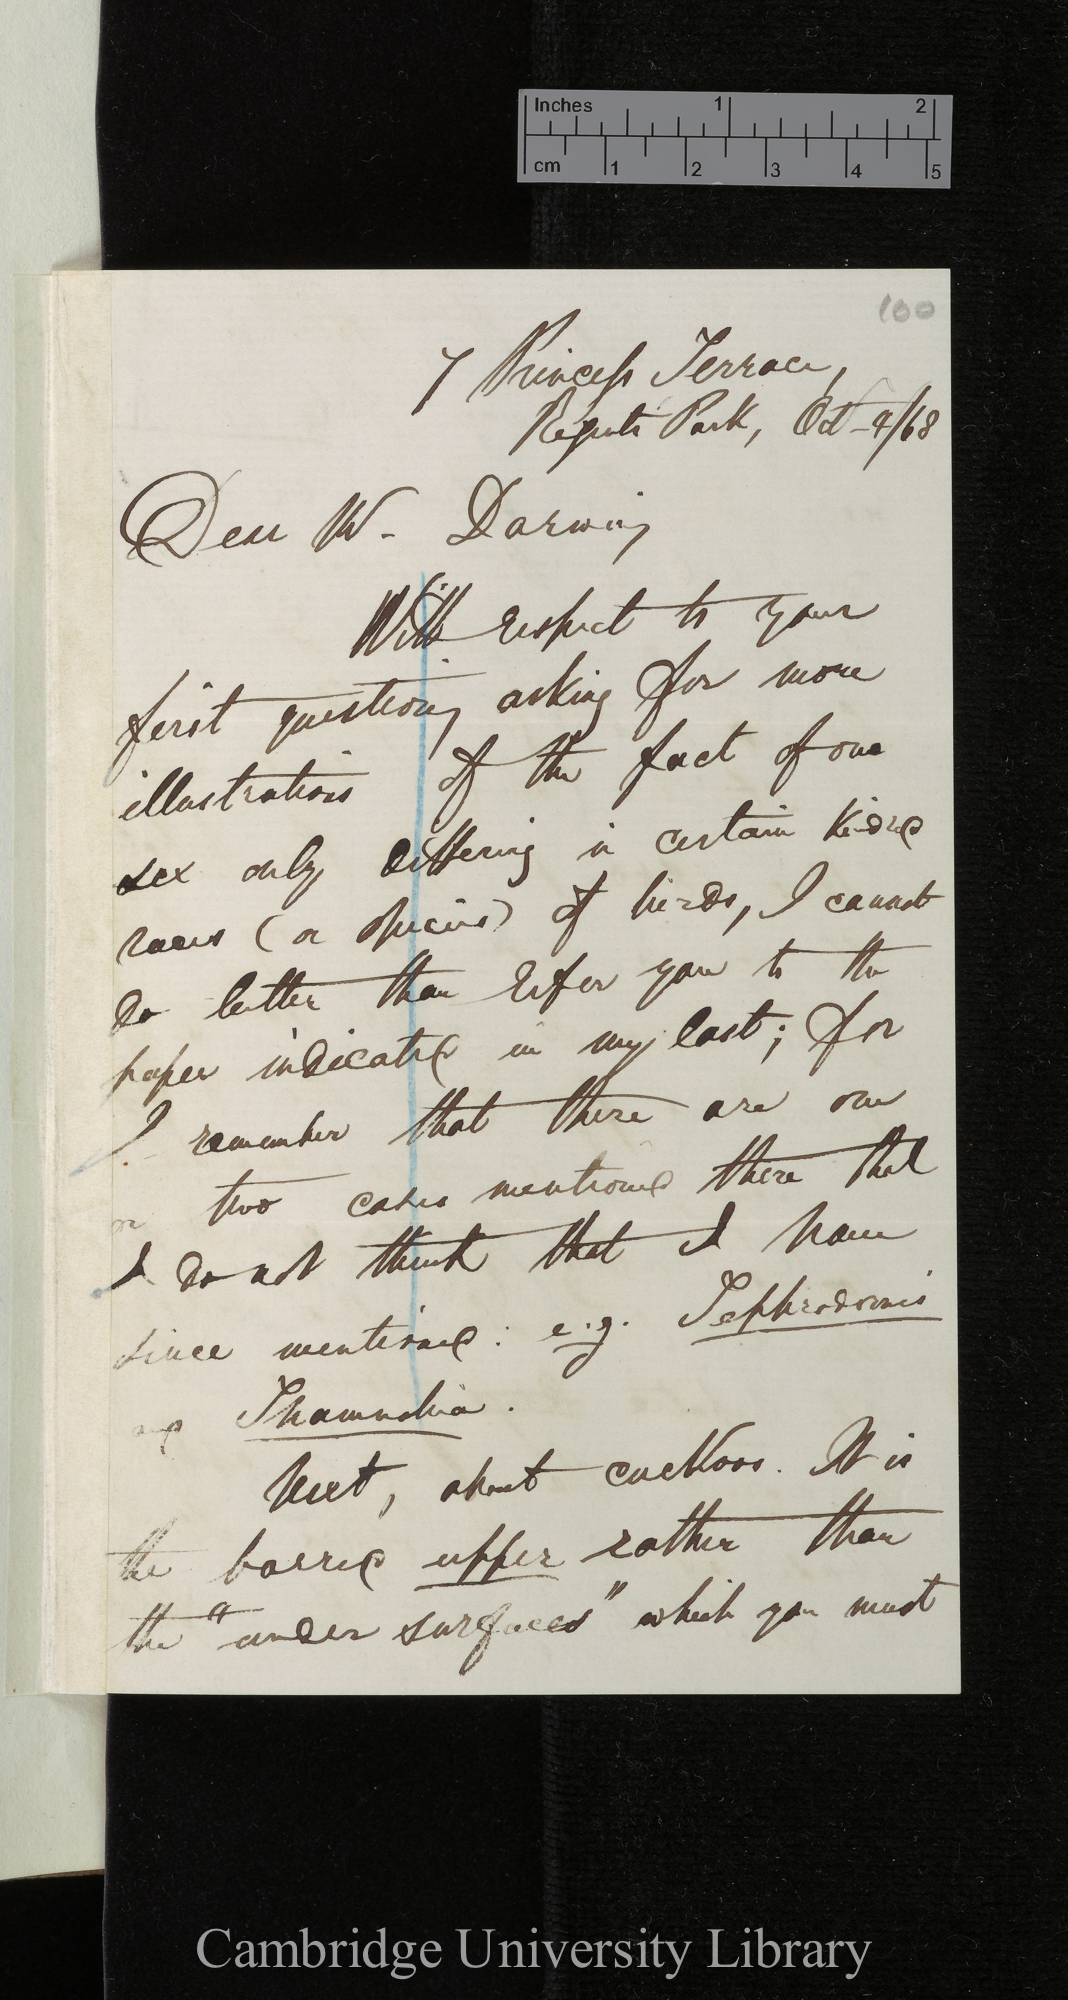 Inches 1 2
cm 1 2 3 4 5
100
7 Princess Terrace,
Regents Park, Oct- 4/68
Dear Mr. Darwin,
With respect to your
first question, asking for more
illustrations of the fact of one
sex only differing in certain kindred
races (or species) of birds, I cannot
do better than refer you to the
paper indicated in my last; for
I remember that there are one
or two cases mentioned there that
I do not think that I have
since mentioned: e.g. Tephrodornis
and Thamnobia.
Next, about cuckoos. It is
the barred upper rather than
the "under surfaces" which you must
Cambridge University Library